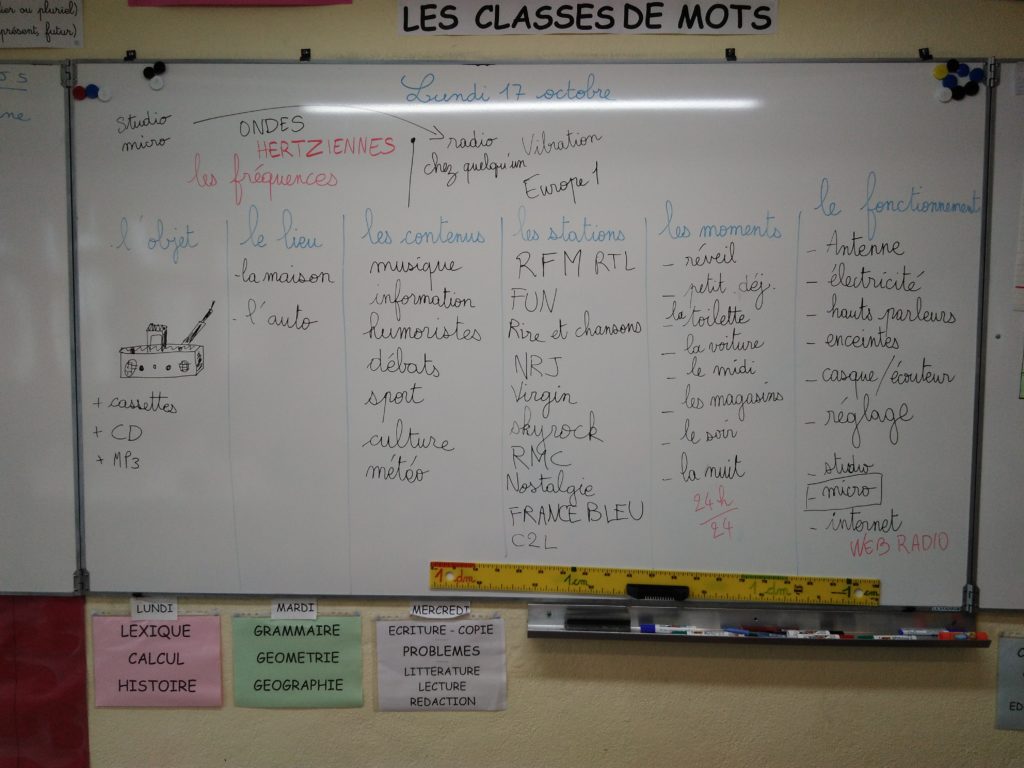 ier ou pluriel)
présent, futur)
LES CLASSES DE MOTS
Lundi 17 octobre
Studio
micro
ONDES
HERTZIENNES
les fréquences
radio
chez quelqu'un
Vibration
Europe 1
l'objet
+ cassettes
+ CD
+ MP3
le lieu
- la maison
- l'auto
les contenus
musique
information
humoristes
débats
sport
culture
météo
les stations
RFM RTL
FUN
Rire et chansons
NRJ
Virgin
skyrock
RMC
Nostalgie
FRANCE BLEU
C2L
les moments
- réveil
- petit déj.
- la toilette
- la voiture
- le midi
- les magasins
- le soir
- la nuit
24h
24
le fonctionnement
- Antenne
- électricité
- hauts parleurs
- enceintes
- casque/écouteur
- réglage
- studio
- micro
- internet
WEB RADIO
1 dm
1 cm
1 dm
1 cm
LUNDI
LEXIQUE
CALCUL
HISTOIRE
MARDI
GRAMMAIRE
GEOMETRIE
GEOGRAPHIE
MERCREDI
ECRITURE - COPIE
PROBLEMES
LITTERATURE
LECTURE
REDACTION
ED